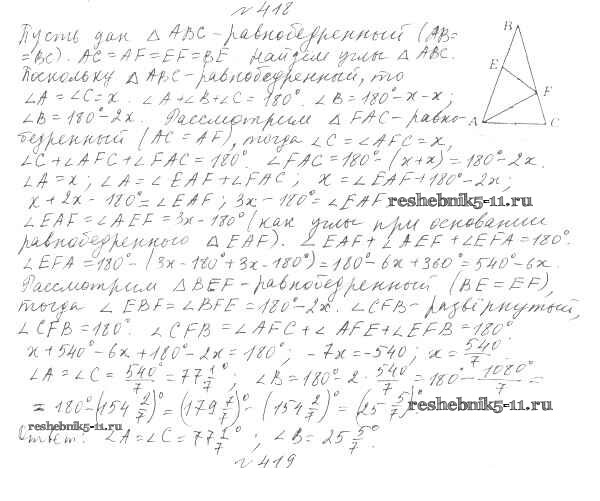 № 418
Пусть дан △ ABC - равнобедренный (AB=
= BC). AC = AF = EF = BE Найдем углы △ ABC.
Поскольку △ ABC - равнобедренный, то
∠A = ∠C = x. ∠A + ∠B + ∠C = 180°. ∠B = 180° - x - x;
∠B = 180° - 2x. Рассмотрим △ FAC - равно-
бедренный (AC = AF), тогда ∠C = ∠AFC = x,
∠C + ∠AFC + ∠FAC = 180°. ∠FAC = 180° - (x + x) = 180° - 2x.
∠A = x; ∠A = ∠EAF + ∠FAC; x = ∠EAF + 180° - 2x;
x + 2x - 180° = ∠EAF; 3x - 180° = ∠EAF reshebnik5-11.ru
∠EAF = ∠AEF = 3x - 180° (как углы при основании
равнобедренного △ EAF). ∠EAF + ∠AEF + ∠EFA = 180°.
∠EFA = 180° - (3x - 180° + 3x - 180°) = 180° - 6x + 360° = 540° - 6x.
Рассмотрим △ BEF - равнобедренный (BE = EF),
тогда ∠EBF = ∠BFE = 180° - 2x. ∠CFB - развёрнутый,
∠CFB = 180°. ∠CFB = ∠AFC + ∠AFE + ∠EFB = 180°
x + 540° - 6x + 180° - 2x = 180°; -7x = -540; x = 540°/7.
∠A = ∠C = 540°/7 = 77 1/7°; ∠B = 180° - 2 · 540°/7 = 180° - 1080°/7 =
= 180° - (154 2/7)° = (179 7/7)° - (154 2/7)° = (25 5/7)°
reshebnik5-11.ru
Ответ: ∠A = ∠C = 77 1/7°; ∠B = 25 5/7°.
reshebnik5-11.ru
№ 419
B
E
F
A
C